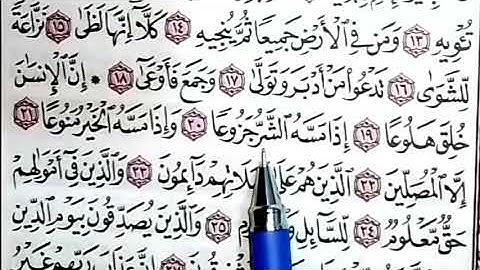 تُـْٔوِيهِ ١٣ وَمَن فِي ٱلْأَرْضِ جَمِيعًا ثُمَّ يُنجِيهِ ١٤ كَلَّآ إِنَّهَا لَظَىٰ ١٥ نَزَّاعَةً
لِّلشَّوَىٰ ١٦ تَدْعُوا۟ مَنْ أَدْبَرَ وَتَوَلَّىٰ ١٧ وَجَمَعَ فَأَوْعَىٰٓ ١٨ * إِنَّ ٱلْإِنسَٰنَ
خُلِقَ هَلُوعًا ١٩ إِذَا مَسَّهُ ٱلشَّرُّ جَزُوعًا ٢٠ وَإِذَا مَسَّهُ ٱلْخَيْرُ مَنُوعًا ٢١
إِلَّا ٱلْمُصَلِّينَ ٢٢ ٱلَّذِينَ هُمْ دَآئِمُونَ ٢٣ وَٱلَّذِينَ فِيٓ أَمْوَٰلِهِمْ
حَقٌّ مَّعْلُومٌ ٢٤ لِّلسَّآئِلِ ٢٥ وَٱلَّذِينَ يُصَدِّقُونَ بِيَوْمِ ٱلدِّينِ
إِنَّ عَذَابَ رَبِّهِمْ غَيْرُ